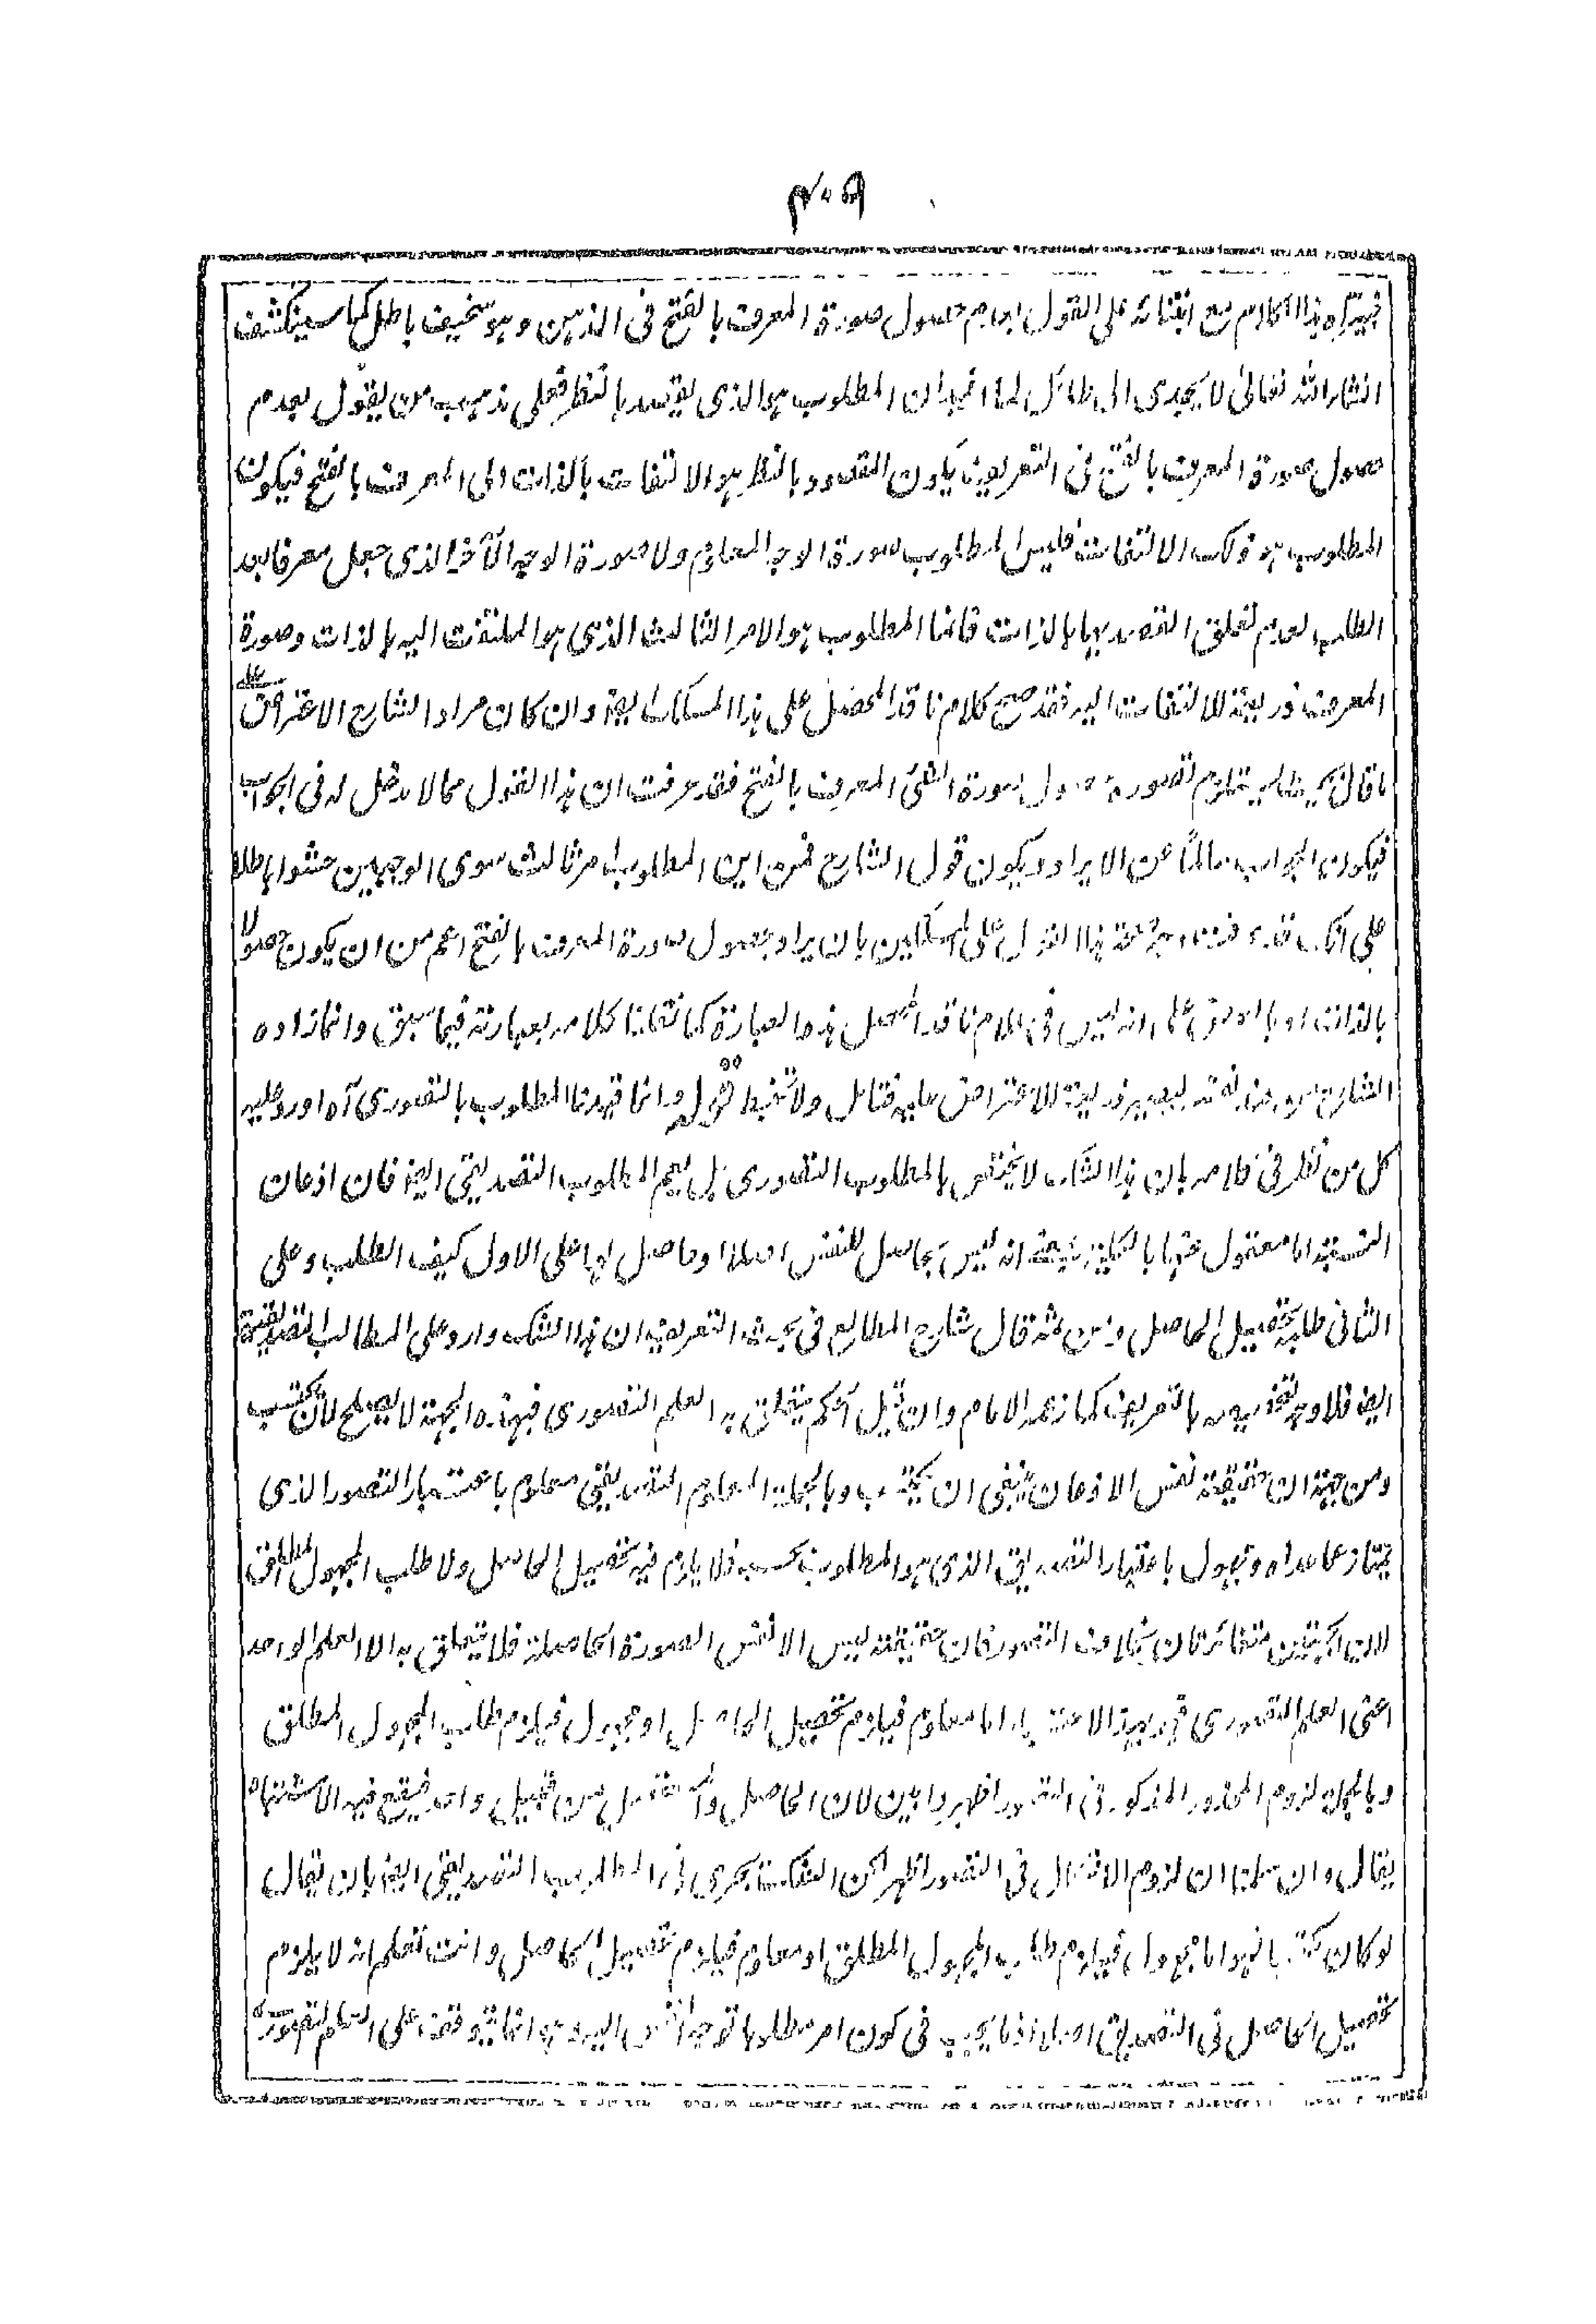 ٤٠٩
فيتم هذا الكلام مع ابتنائه على القول بعدم حصول صورة المعرف بالفتح فى الذهن وهو سخيف باطل كما سينكشف
انشاء الله تعالى لا يجدى الى طائل لما ان المطلوب هو الذى يقصد بالنظر فعلى مذهب من يقول بعدم
حصول صورة المعرف بالفتح فى التعريف يكون المقصود بالنظر هو الالتفات بالذات الى المعرف بالفتح فيكون
المطلوب هو ذلك الالتفات فليس المطلوب صورة الوجه المعلوم ولا صورة الوجه الآخر الذى جعل معرفا بعد
الطلب لعدم تعلق القصد بها بالذات فانما المطلوب هو الامر الثالث الذى هو الملتفت اليه بالذات وصورة
المعرف ذريعة للالتفات اليه فقد صح كلام ناقد المحصل على هذا المسلك ايضا وان كان مراد الشارح الاعتراض على
ما قال يستلزم تصوره حصول صورة الشئ المعرف بالفتح فقد عرفت ان هذا القول مما لا دخل له فى الجواب
فيكون الجواب سالما عن الايراد ويكون قول الشارح فمن اين المطلوب امر ثالث سوى الوجهين حشوا باطلا
على انك قد عرفت صحة هذا القول على المسلكين بان يراد بحصول صورة المعرف بالفتح اعم من ان يكون حصولا
بالذات او بالعرض على انه ليس فى كلام ناقد المحصل هذه العبارة كما نقلنا كلامه بعبارته فيما سبق وانما زاده
الشارح من عنده ليصير ذريعة للاعتراض عليه فتامل ولا تخبط قوله وانما قيدنا المطلوب بالتصورى آه اورد عليه
كل من نظر فى كلامه بان هذا الشك لا يختص بالمطلوب التصورى بل يعم المطلوب التصديقى ايضا فان اذعان
النسبة اما مغفول عنها بالكلية بمعنى انه ليس بحاصل للنفس اصلا او حاصل لها على الاول كيف الطلب وعلى
الثانى طلبه تحصيل الحاصل ومن ثمه قال شارح المطالع فى بحث التعريف ان هذا الشك وارد على المطالب التصديقية
ايضا فلا وجه لتخصيصه بالتعريف كما زعمه الامام وان قيل الحكم يتعلق به العلم التصورى فبهذه الجهة لا يصلح لان يكتسب
ومن جهة ان حقيقته نفس الاذعان ينبغى ان يكتسب وبالجملة المعلوم التصديقى معلوم باعتبار التصور الذى
يمتاز عما عداه ومجهول باعتبار التصديق الذى هو المطلوب بحسبه فلا يلزم فيه تحصيل الحاصل ولا طلب المجهول المطلق
لان الجهتين متغائرتان بخلاف التصور فان حقيقته ليس الا نفس الصورة الحاصلة فلا يتعلق به الا العلم الواحد
اعنى العلم التصورى فبهذا الاعتبار اما معلوم فيلزم تحصيل الحاصل او مجهول فيلزم طلب المجهول المطلق
وبالجملة لزوم المحذور المذكور فى التصور اظهر وابين لان الحاصل والمستحصل من قبيل واحد فيقع فيه الاشتباه
يقال وان سلمنا ان لزوم الاشكال فى التصور اظهر لكن الشك يجرى فى المطلوب التصديقى ايضا بان يقال
لو كان مكتسبا فهو اما مجهول فيلزم طلب المجهول المطلق او معلوم فيلزم تحصيل الحاصل وانت تعلم انه لا يلزم
تحصيل الحاصل فى التصديق اصلا اذ ما يجب فى كون امر مطلوبا توجه النفس اليه وهو انما يتوقف على العلم التصورى